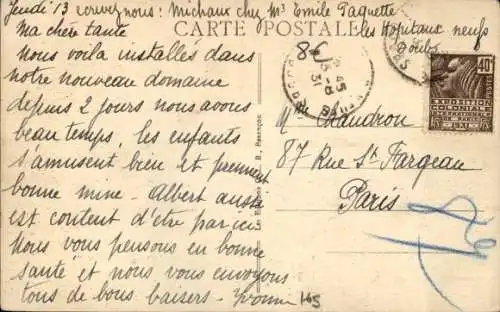 Jeudi 13 écrivez nous : Michaux chez Mr Emile Paquette
les Hopitaux neufs
Doubs
CARTE POSTALE
Ma chère tante
Nous voila installés dans
notre nouveau domaine
depuis 2 jours nous avons
beau temps, les enfants
s'amusent bien et prennent
bonne mine. Albert aussi
est content d'être par ici
Nous vous pensons en bonne
santé et nous vous envoyons
tous de bons baisers - Yvonne
8
45
31
DOUBS
40c
EXPOSITION
COLONIALE
INTERNATIONALE
PARIS
1931
Mme Chaudron
87 Rue St Fargeau
Paris
165